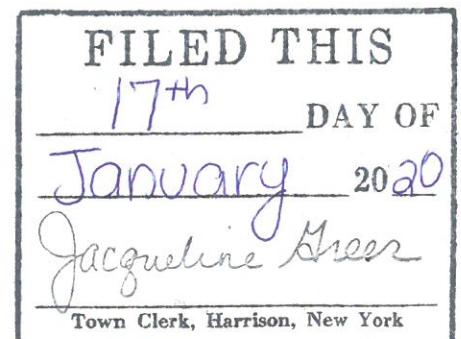 FILED THIS
17th DAY OF
January 2020
Jacqueline Greer
Town Clerk, Harrison, New York